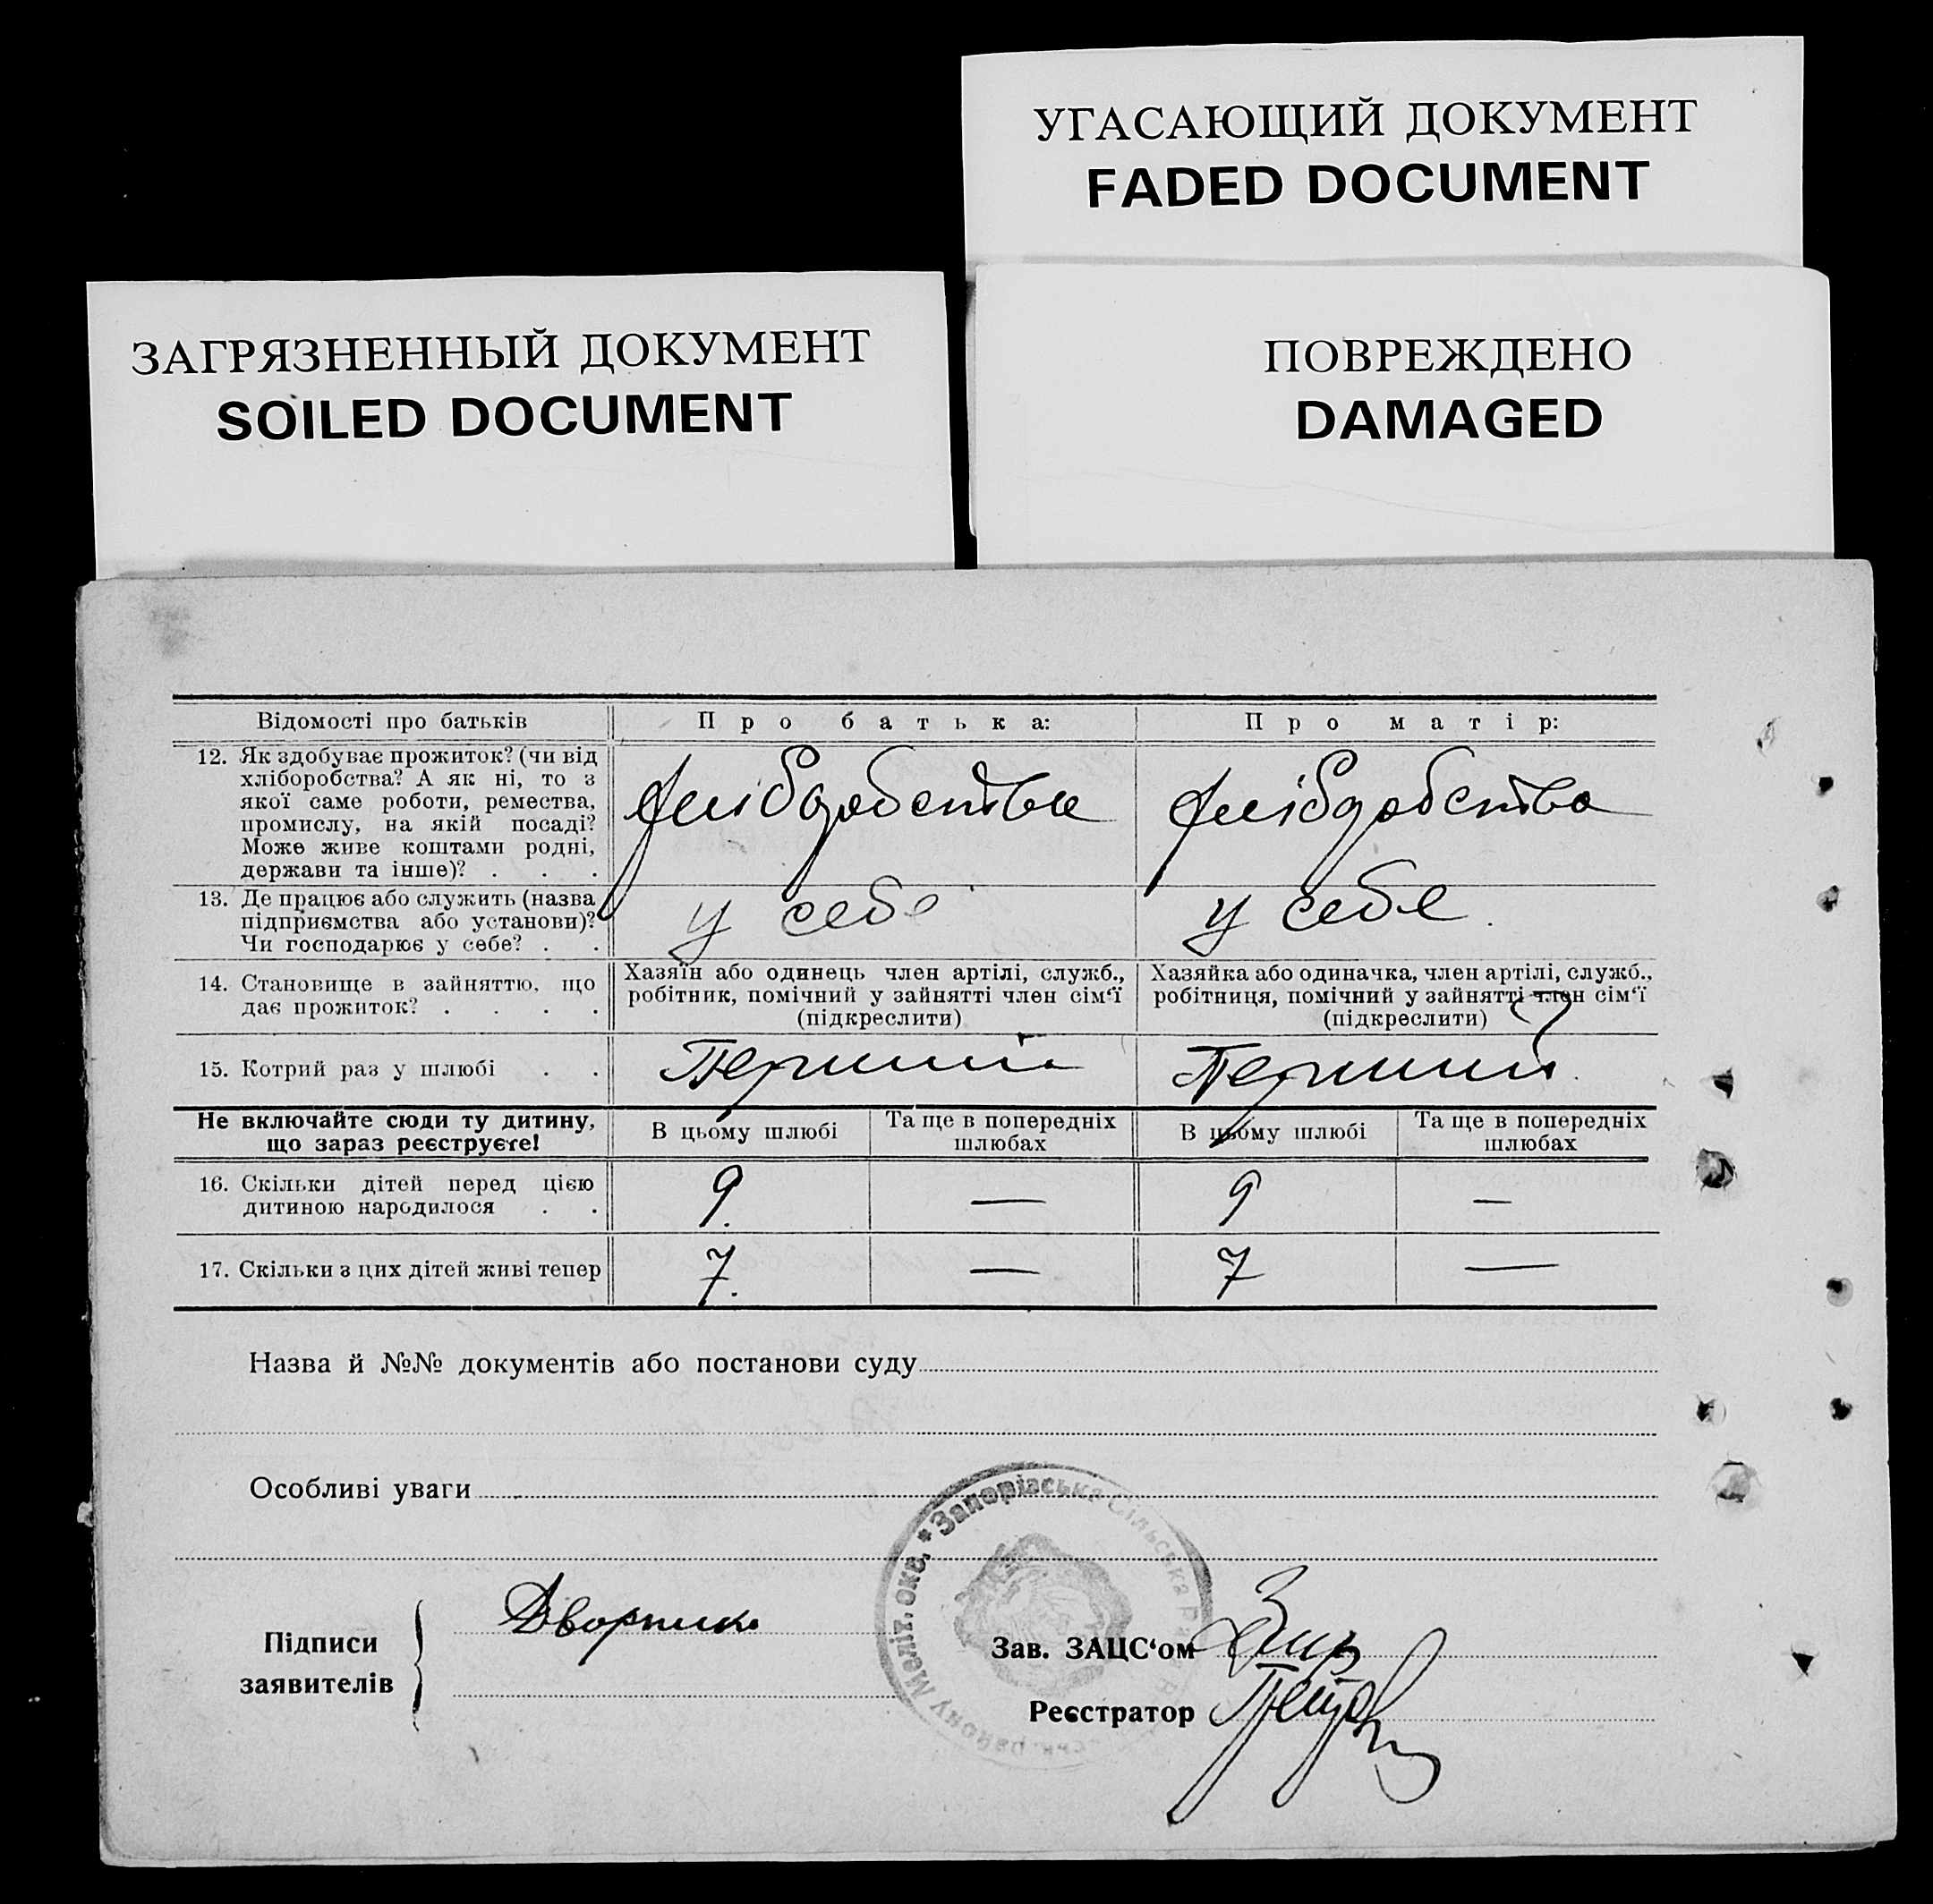 УГАСАЮЩИЙ ДОКУМЕНТ
FADED DOCUMENT
ЗАГРЯЗНЕННЫЙ ДОКУМЕНТ
SOILED DOCUMENT
ПОВРЕЖДЕНО
DAMAGED
Відомості про батьків
Про батька:
Про матір:
12. Як здобуває прожиток? (чи від
хліборобства? А як ні, то з
якої саме роботи, ремества,
промислу, на якій посаді?
Може живе коштами родні,
держави та інше)? . . .
13. Де працює або служить (назва
підприємства або установи)?
Чи господарює у себе? . .
у себе
у себе
14. Становище в зайняттю, що
дає прожиток? . . . .
Хазяїн або одинець член артілі, служб.,
робітник, помічний у зайнятті член сім‘ї
(підкреслити)
Хазяйка або одиначка, член артілі, служб.,
робітниця, помічний у зайнятті член сім‘ї
(підкреслити)
15. Котрий раз у шлюбі . .
Перший
Перший
Не включайте сюди ту дитину,
що зараз реєструєте!
В цьому шлюбі
Та ще в попередніх
шлюбах
В цьому шлюбі
Та ще в попередніх
шлюбах
16. Скільки дітей перед цією
дитиною народилося . .
9.
—
9
—
17. Скільки з цих дітей живі тепер
7.
—
7
—
Назва й №№ документів або постанови суду
Особливі уваги
Запорізська Сільська
району Меліт. окв. *
Підписи
заявителів
Дворник
Зав. ЗАЦС‘ом
Реєстратор